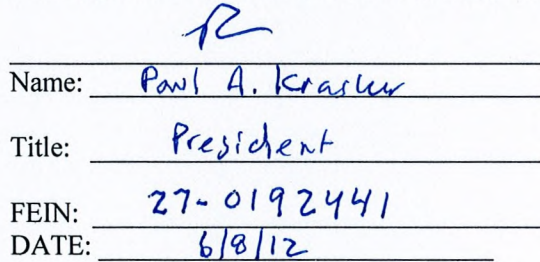 Name: Paul A. Krasker
Title: President
FEIN: 27-0192441
DATE: 6/8/12